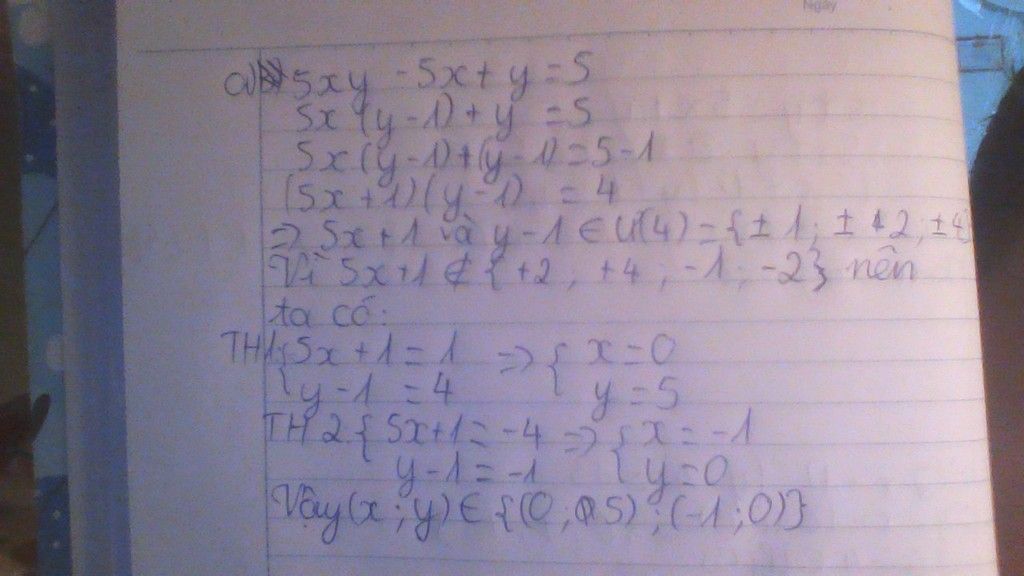 Ngày
a) 5xy - 5x + y = 5
5x (y-1) + y = 5
5x (y-1) + (y-1) = 5-1
(5x+1) (y-1) = 4
=> 5x+1 và y-1 ∈ Ư(4) = {±1; ±2; ±4}
Vì 5x+1 ∉ {+2; +4; -1; -2} nên
ta có:
TH1 { 5x+1 = 1 => { x = 0
y-1 = 4 y = 5
TH2 { 5x+1 = -4 => { x = -1
y-1 = -1 y = 0
Vậy (x; y) ∈ {(0; 5); (-1; 0)}